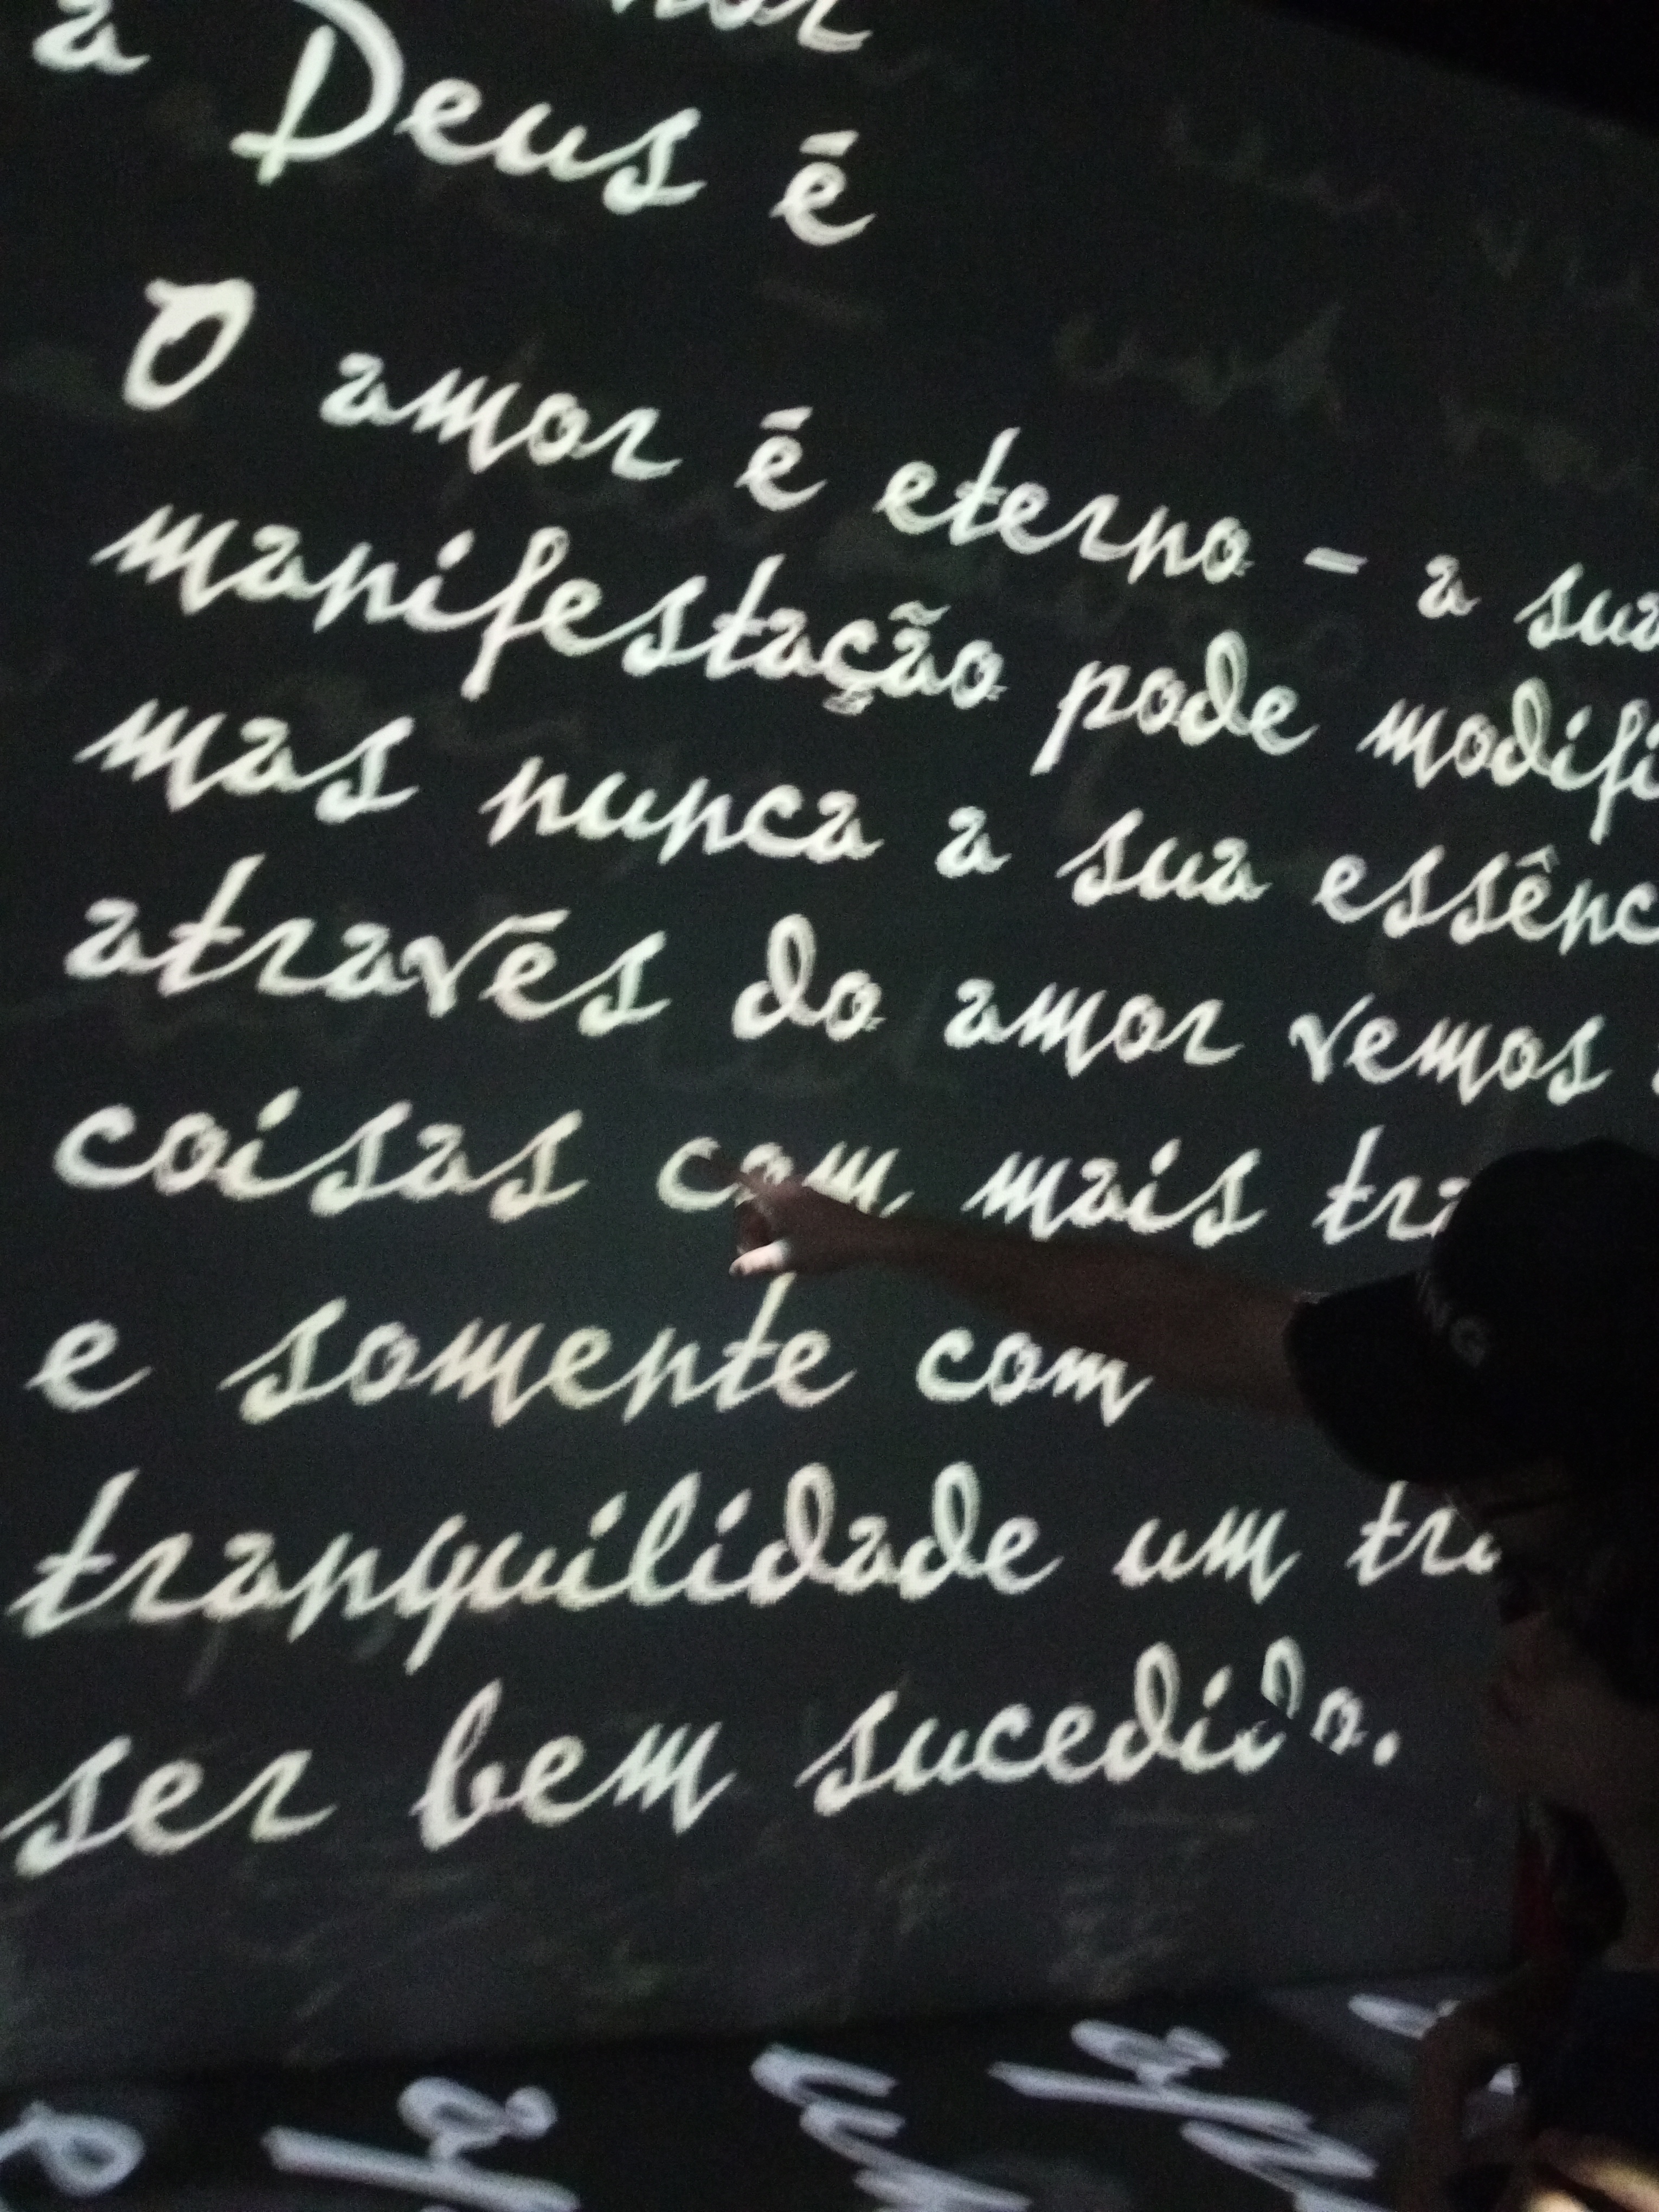 a
Deus é
O amor é eterno - a sua
manifestação pode modifi
mas nunca a sua essênc
através do amor vemos
coisas com mais tra
e somente com
tranquilidade um tra
ser bem sucedido.